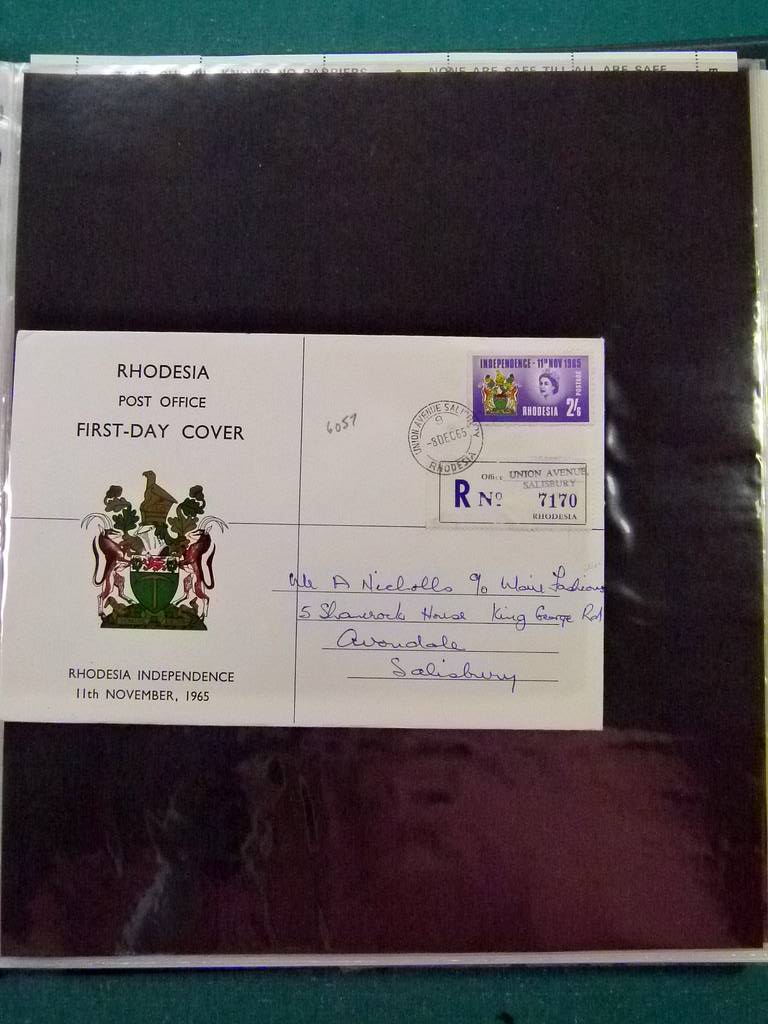 KNOWS NO BARRIERS NONE ARE SAFE TILL ALL ARE SAFE
RHODESIA
POST OFFICE
FIRST-DAY COVER
6057
INDEPENDENCE - 11TH NOV 1965
POSTAGE
RHODESIA 2/6
UNION AVENUE SALISBURY
9
-8DEC65
RHODESIA
Office UNION AVENUE,
SALISBURY
R No 7170
RHODESIA
A Nicholls c/o Fashions
5 Shamrock House King George Rd
Avondale
Salisbury
RHODESIA INDEPENDENCE
11th NOVEMBER, 1965